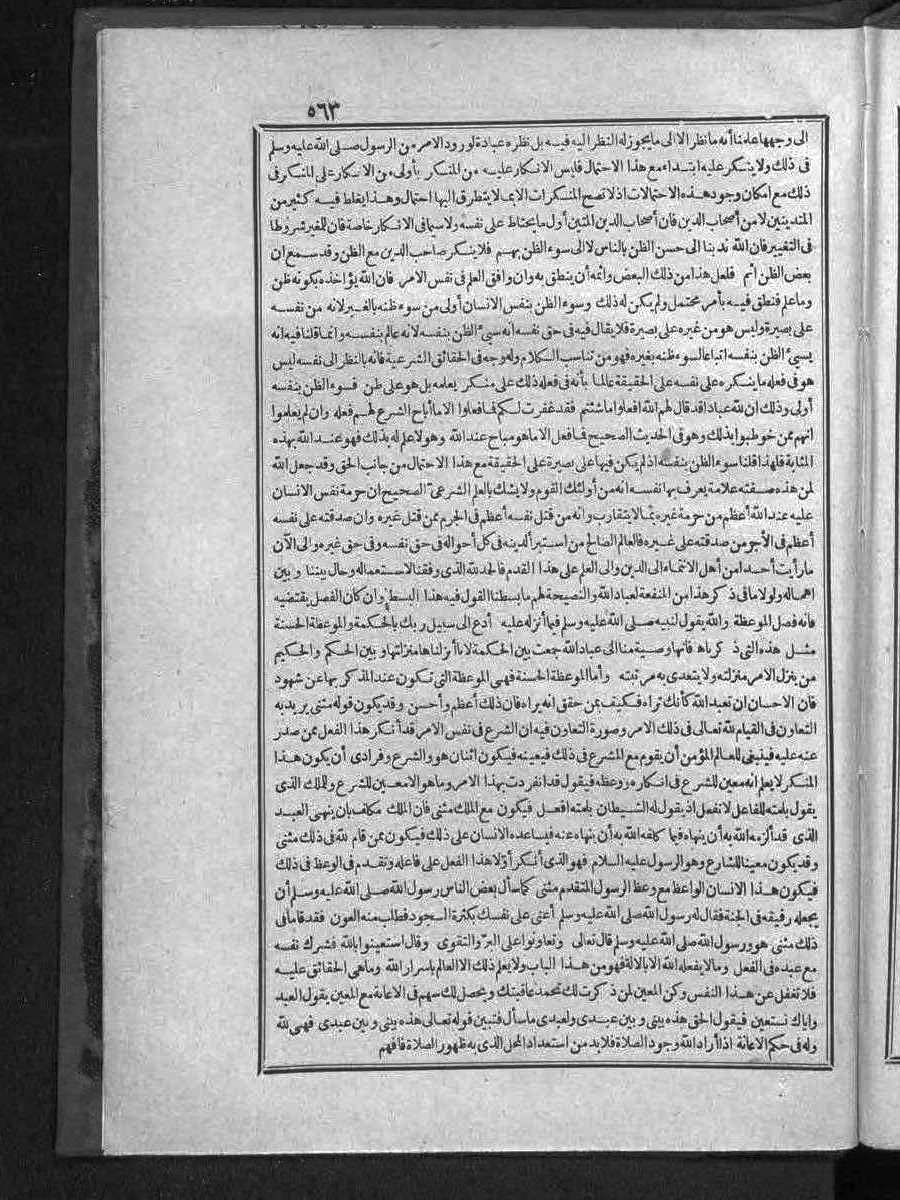 ٥٦٣
الى وجهها علمنا أنه ما نظر الا الى ما يجوز له النظر اليه فيه بل نظره عبادة لورود الامر من الرسول صلى الله عليه وسلم
فى ذلك ولا ينكر عليه ابتداء مع هذا الاحتمال فليس الانكار عليه من المنكر بأولى من الانكار على المنكر فى
ذلك مع امكان وجود هذه الاحتمالات اذ لا تصح المنكرات الا بما لا يتطرق اليها احتمال وهذا يغلط فيه كثير من
المتدينين لا من أصحاب الدين فان أصحاب الدين المتين أول ما يحتاط على نفسه ولا سيما فى الانكار خاصة فان للمغير شروطا
فى التغيير فان الله ندبنا الى حسن الظن بالناس لا الى سوء الظن بهم فلا ينكر صاحب الدين مع الظن وقد سمع ان
بعض الظن اثم فلعل هذا من ذلك البعض واثمه أن ينطق به وان وافق العلم فى نفس الامر فان الله يؤاخذه بكونه ظن
وما علم فنطق فيه بأمر محتمل ولم يكن له ذلك وسوء الظن بنفس الانسان أولى من سوء ظنه بالغير لانه من نفسه
على بصيرة وليس هو من غيره على بصيرة فلا يقال فيه فى حق نفسه انه سيئ الظن بنفسه لانه عالم بنفسه وانما قلنا فيه انه
يسيئ الظن بنفسه اتباعا لسوء ظنه بغيره فهو من تناسب الكلام وله وجه فى الحقائق الشرعية فانه بالنظر الى نفسه ليس
هو فى فعله ما ينكره على نفسه على الحقيقة عالما بأنه فى فعله ذلك على منكر يعلمه بل هو على ظن فسوء الظن بنفسه
أولى وذلك ان لله عبادا قد قال لهم الله افعلوا ما شئتم فقد غفرت لكم فما فعلوا الا ما أباح الشرع لهم فعله وان لم يعلموا
انهم ممن خوطبوا بذلك وهو فى الحديث الصحيح فما فعل الا ما هو مباح عند الله وهو لا علم له بذلك فهو عند الله بهذه
المثابة فلهذا قلنا سوء الظن بنفسه اذ لم يكن فيها على بصيرة على الحقيقة مع هذا الاحتمال من جانب الحق وقد جعل الله
لمن هذه صفته علامة يعرف بها نفسه انه من أولئك القوم ولا يشك بالعلم الشرعى الصحيح ان حرمة نفس الانسان
عليه عند الله أعظم من حرمة غيره بما لا يتقارب وانه من قتل نفسه أعظم فى الجرم ممن قتل غيره وان صدقته على نفسه
أعظم فى الأجر من صدقته على غيره فالعالم الصالح من استبرأ لدينه فى كل أحواله فى حق نفسه وفى حق غيره والى الآن
ما رأيت أحدا من أهل الانتماء الى الدين والى العلم على هذا القدم فالحمد لله الذى وفقنا لاستعماله وحال بيننا وبين
اهماله ولولا ما فى ذكر هذا من المنفعة لعباد الله والنصيحة لهم ما بسطنا القول فيه هذا البسط وان كان الفصل يقتضيه
فانه فصل الموعظة والله يقول لنبيه صلى الله عليه وسلم فيما أنزله عليه أدع الى سبيل ربك بالحكمة والموعظة الحسنة
مثل هذه التى ذكرناه فانها وصية منا الى عباد الله جمعت بين الحكمة لانا أنزلناها منزلتها وبين الحكم والحكيم
من ينزل الامر منزلته ولا يتعدى به مرتبته وأما الموعظة الحسنة فهى الموعظة التى تكون عند المذكر بها عن شهود
فان الاحسان ان تعبد الله كأنك تراه فكيف بمن حقق انه يراه فان ذلك أعظم وأحسن وقد يكون قوله مثنى يريد به
التعاون فى القيام لله تعالى فى ذلك الامر وصورة التعاون فيه ان الشرع فى نفس الامر قد أنكر هذا الفعل ممن صدر
عنه عليه فينبغى للعالم المؤمن أن يقوم مع المشرع فى ذلك فيعينه فيكون اثنان هو والشرع وفرادى أن يكون هذا
المنكر لا يعلم انه معين للشرع فى انكاره ووعظه فيقول قد انفردت بهذا الامر وما هو الا معين للشرع وللملك الذى
يقول بلمته للفاعل لا تفعل اذ يقول له الشيطان بلمته افعل فيكون مع الملك مثنى فان الملك مكلف بان ينهى العبد
الذى قد ألزمه الله به أن ينهاه فيما كلفه الله به أن ينهاه عنه فيساعده الانسان على ذلك فيكون ممن قام لله فى ذلك مثنى
وقد يكون معينا للشارع وهو الرسول عليه السلام فهو الذى أنكر أولا هذا الفعل على فاعله وتقدم فى الوعظ فى ذلك
فيكون هذا الانسان الواعظ مع وعظ الرسول المتقدم مثنى كما سأل بعض الناس رسول الله صلى الله عليه وسلم أن
يجعله رفيقه فى الجنة فقال له رسول الله صلى الله عليه وسلم أعنى على نفسك بكثرة السجود فطلب منه العون فقد قاما فى
ذلك مثنى هو ورسول الله صلى الله عليه وسلم قال تعالى وتعاونوا على البر والتقوى وقال استعينوا بالله فشرك نفسه
مع عبده فى الفعل وما لا يفعله الله الا بالآلة فهو من هذا الباب ولا يعلم ذلك الا العالم باسرار الله وما هى الحقائق عليه
فلا تغفل عن هذا النفس وكن المعين لمن ذكرت لك تحمد عاقبتك ويحصل لك سهم فى الاعانة مع المعين يقول العبد
واياك نستعين فيقول الحق هذه بينى وبين عبدى ولعبدى ما سأل فتبين قوله تعالى هذه بينى وبين عبدى فهى لله
وله فى حكم الاعانة اذا أراد الله وجود الصلاة فلا بد من استعداد المحل الذى به ظهور الصلاة فافهم